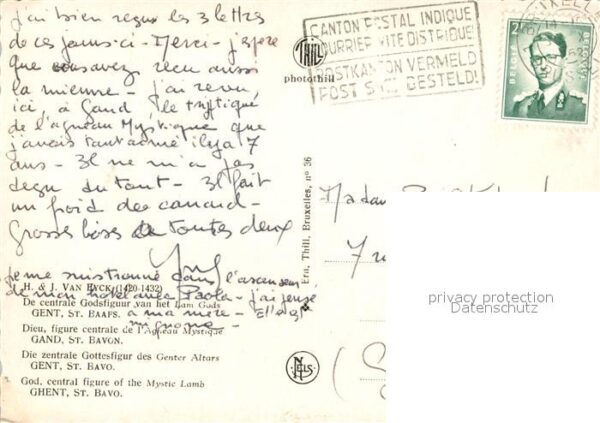 j'ai bien reçu les 3 lettres
de ces jours-ci - Merci - j'espère
que vous avez reçu aussi
la mienne - j'ai revu,
ici, à Gand, le tryptique
de l'agneau Mystique que
j'avais tant aimé il y a 7
ans - Il ne m'a pas
déçu du tout - Il fait
un froid de canard -
Grosses bises de toutes deux
je me suis trouvé dans l'ascenseur
de mon hôtel avec Paola - j'ai pensé
à ma mère - Elle est
mignonne -
CANTON POSTAL INDIQUE
COURRIER VITE DISTRIBUE
POSTKANTON VERMELD
POST SNEL BESTELD!
THILL
photothill
IXELLES
BELGIE
BELGIQUE
Era, Thill, Bruxelles, n° 36
H. & J. VAN EYCK (1420-1432)
De centrale Godsfiguur van het Lam Gods
GENT, ST. BAAFS.
Dieu, figure centrale de l'Agneau Mystique
GAND, ST. BAVON.
Die zentrale Gottesfigur des Genter Altars
GENT, ST. BAVO.
God, central figure of the Mystic Lamb
GHENT, ST. BAVO.
NELS
Madame
privacy protection
Datenschutz